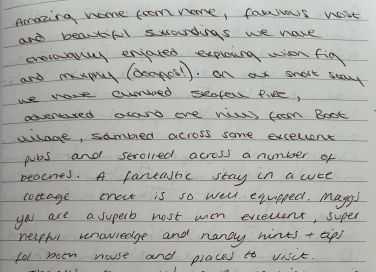 Amazing home from home, fabulous host
and beautiful surroundings we have
thoroughly enjoyed exploring with Fig
and Murphy (doggies!). On our short stay
we have climbed Scafell Pike,
adventured around the hills from Boot
village, sambled across some excellent
pubs and strolled across a number of
beaches. A fantastic stay in a cute
cottage that is so well equipped. Maggs
you are a superb host with excellent, super
helpful knowledge and handy hints + tips
for both house and places to visit.